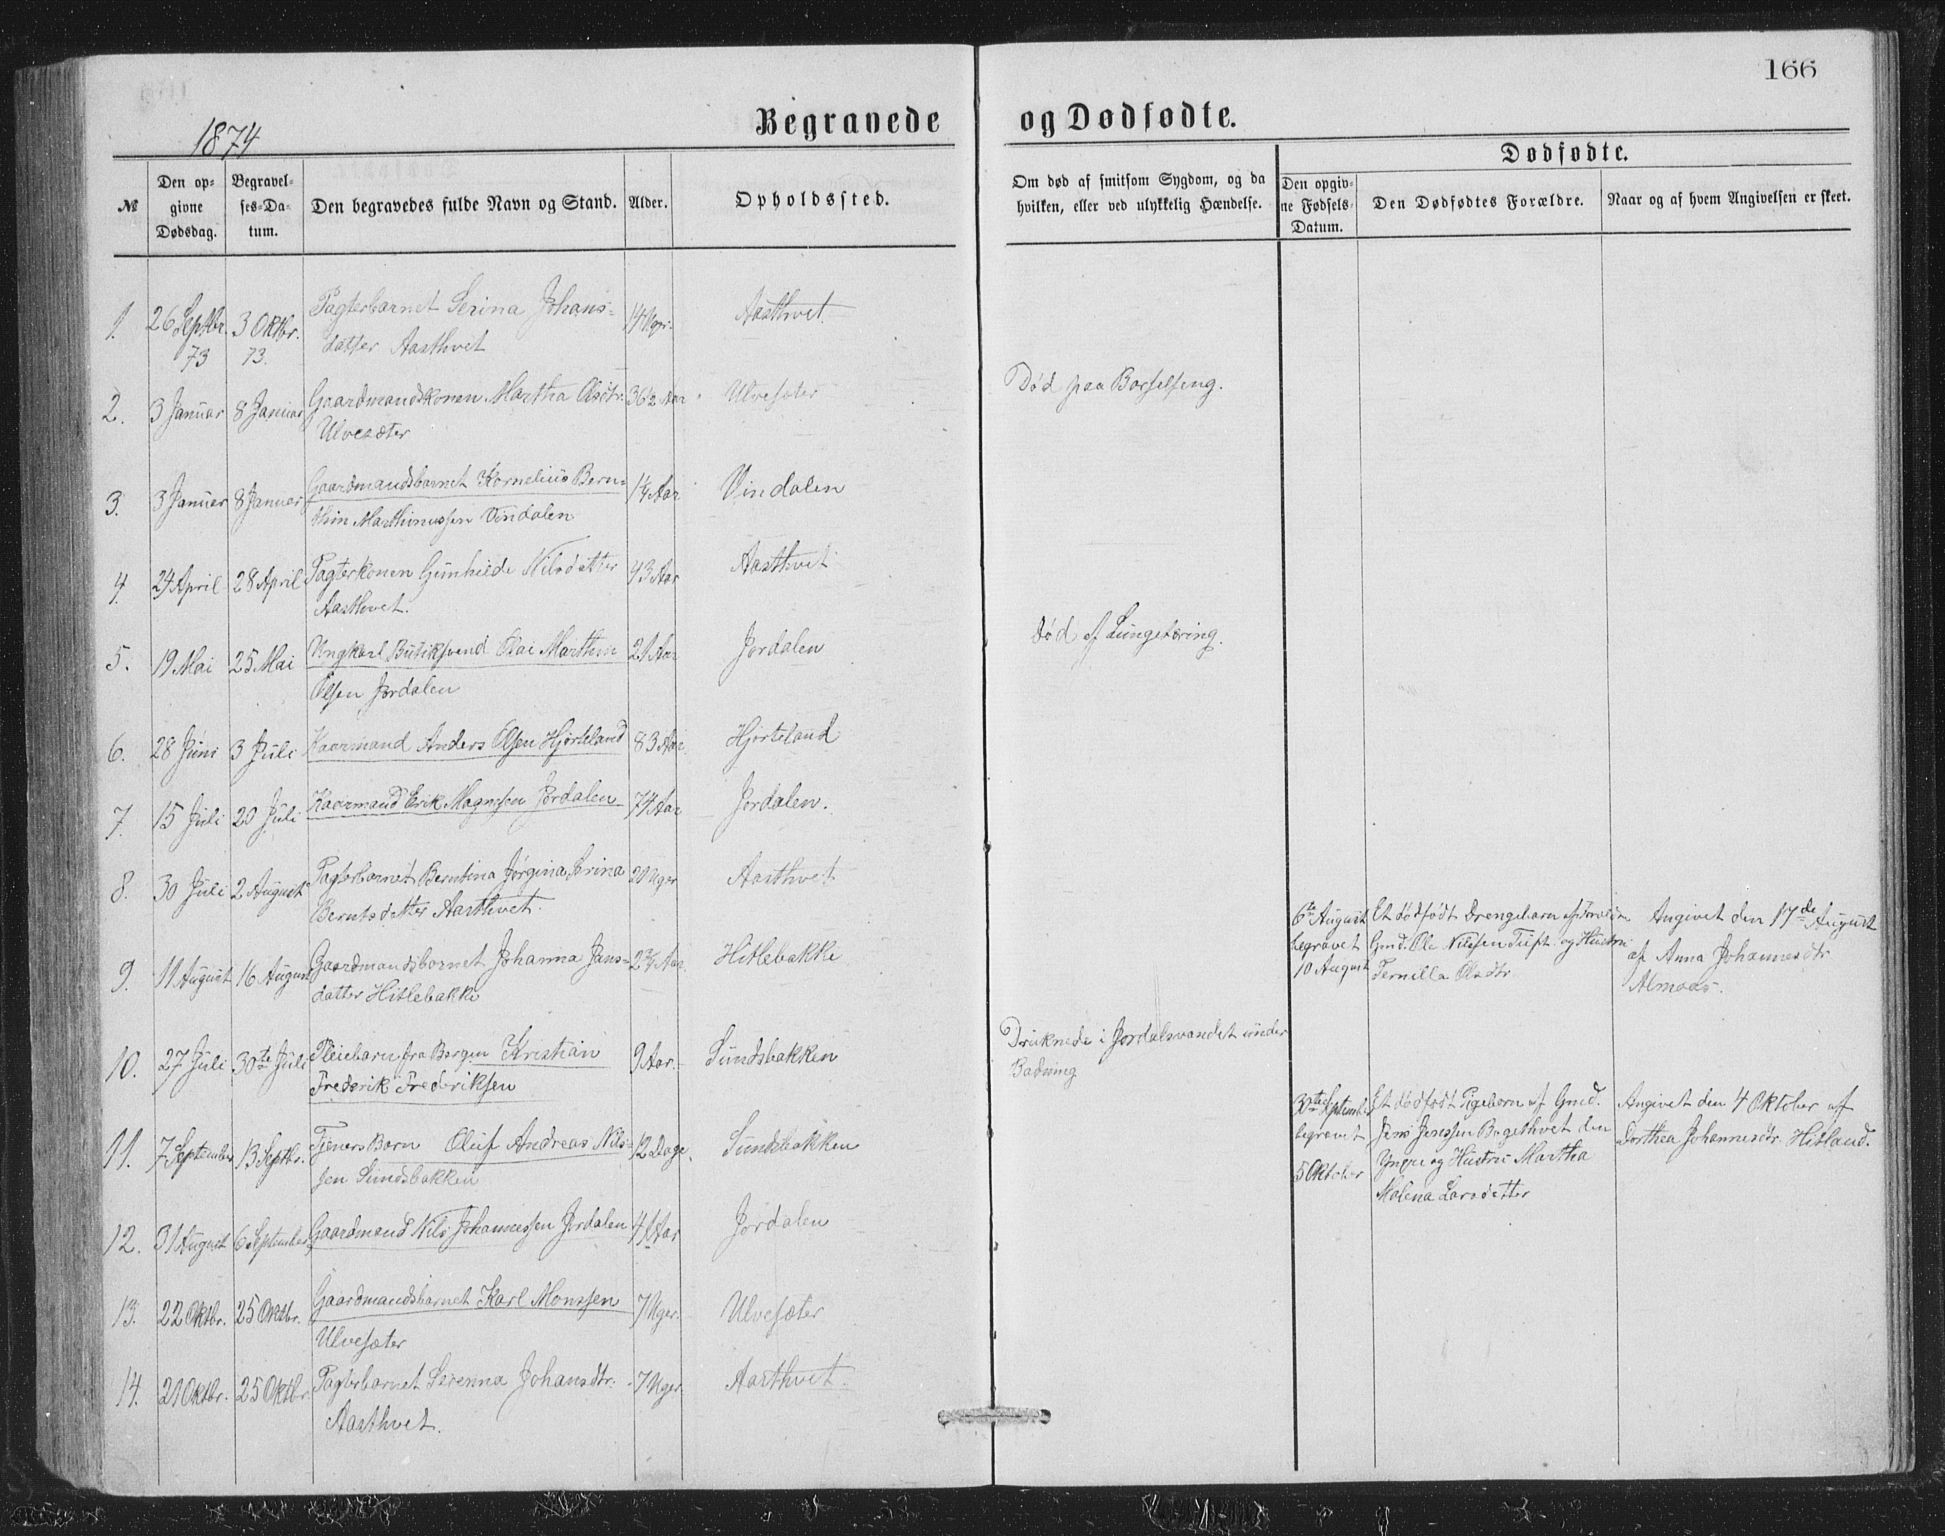 166
1874
Begravede og Dødfødte.
№
Den opgivne Dødsdag.
Begravelses-Datum.
Den begravedes fulde Navn og Stand.
Alder.
Opholdssted.
Om død af smitsom Sygdom, og da hvilken, eller ved ulykkelig Hændelse.
Dødfødte.
Den opgivne Fødsels-Datum.
Den Dødfødtes Forældre.
Naar og af hvem Angivelsen er skeet.
1. 26 Septbr. 73 3 Oktbr. 73. Pagterbarnet Serina Johans- 14 Uger. Aasthvet.
datter Aasthvet
2. 3 Januar 8 Januar Gaardmandskonen Martha Olsdtr. 36½ Aar Ulvesæter Død paa Barselseng.
Ulvesæter
3. 3 Januar 8 Januar Gaardmandsbarnet Kornelius Bern- 1¼ Aar Vindalen
thin Marthinussen Vindalen
4. 24 April 28 April Pagterkonen Gunhilde Nilsdatter 43 Aar Aasthvet
Aasthvet.
5. 19 Mai 25 Mai Ungkarl Butiksvend Olai Marthin 21 Aar Jordalen Død af Lungetæring.
Olsen Jordalen
6. 28 Juni 3 Juli Kaarmand Anders Olsen Hjorteland 83 Aar Hjorteland
7. 15 Juli 20 Juli Kaarmand Erik Magnssen Jordalen 74 Aar Jordalen.
8. 30 Juli 2 August Pagterbarnet Berntina Jørgina Serina 21 Uger Aasthvet
Berntsdatter Aasthvet.
6te August Et dødfødt Drengebarn af Angivet den 17de August
begravet Gmd. Ole Nilssen Tuft og Hustru af Anna Johannesdtr.
10 August Pernilla Olsdtr Almaas.
9. 11 August 16 August Gaardmandsbarnet Johanna Jans- 2¾ Aar Hitlebakke
datter Hitlebakke
10. 27 Juli 30te Juli Pleiebarn fra Bergen Kristian 9 Aar. Sundsbakken Druknede i Jordalsvandet under
Frederik Frederiksen Badning.
30te September Et dødfødt Pigebarn af Gmd. Angivet den 4 Oktober af
begravet Jens Jenssen Bugethvet den Dorthea Johannesdtr. Hitland.
5 Oktober Yngre og Hustru Martha
Malena Larsdatter
11. 7 September 13 Septbr. Tjeners Barn Oluf Andreas Nils- 12 Dage. Sundsbakken
sen Sundsbakken
12. 31 August 6 September Gaardmand Nils Johannessen Jordalen 41 Aar Jordalen
13. 22 Oktbr. 25 Oktbr. Gaardmandsbarnet Karl Monssen 7 Uger. Ulvesæter
Ulvesæter
14. 21 Oktbr. 25 Oktbr Pagterbarnet Serenna Johansdtr. 7 Uger. Aasthvet.
Aasthvet.